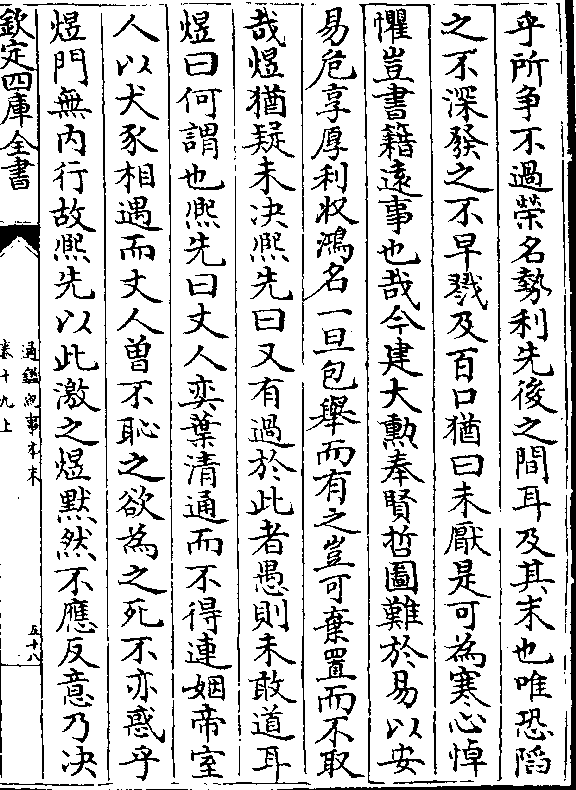 乎所争不過榮名勢利先後之間耳及其末也唯恐䧟
之不深發之不早戮及百口猶曰未厭是可為寒心悼
懼豈書籍遠事也哉今建大勲奉賢哲圖難於易以安
易危享厚利收鴻名一旦包舉而有之豈可棄置而不取
哉煜猶疑未決熈先曰又有過於此者愚則未敢道耳
煜曰何謂也熈先曰丈人奕葉清通而不得連姻帝室
人以犬豕相遇而丈人曽不恥之欲為之死不亦惑乎
煜門無内行故熈先以此激之煜黙然不應反意乃决
欽定四庫全書
通鑑紀事本末
卷十九上
五十八